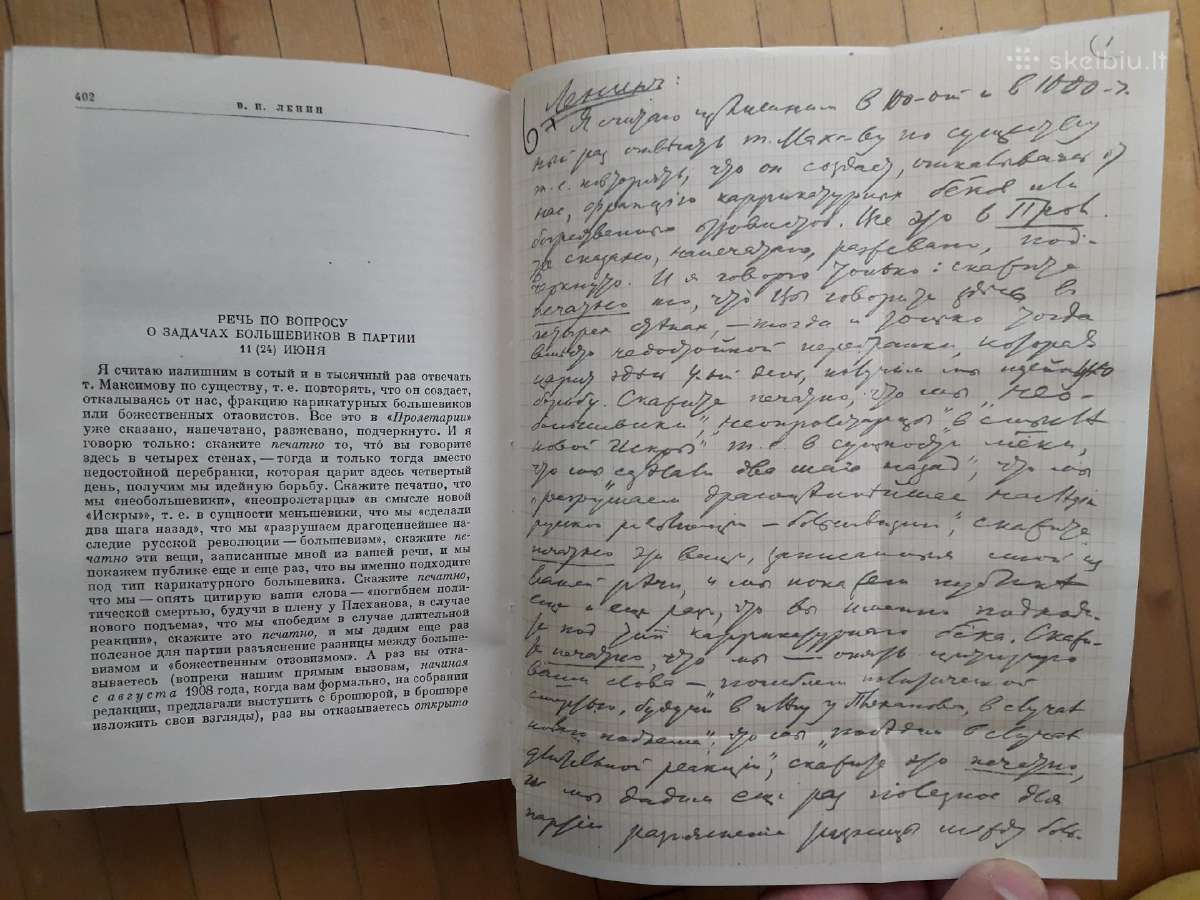 402
В. И. ЛЕНИН
РЕЧЬ ПО ВОПРОСУ
О ЗАДАЧАХ БОЛЬШЕВИКОВ В ПАРТИИ
11 (24) ИЮНЯ
Я считаю излишним в сотый и в тысячный раз отвечать
т. Максимову по существу, т. е. повторять, что он создает,
откалываясь от нас, фракцию карикатурных большевиков
или божественных отзовистов. Все это в «Пролетарии»
уже сказано, напечатано, разжевано, подчеркнуто. И я
говорю только: скажите печатно то, что́ вы говорите
здесь в четырех стенах, — тогда и только тогда вместо
недостойной перебранки, которая царит здесь четвертый
день, получим мы идейную борьбу. Скажите печатно, что
мы «необольшевики», «неопролетарцы» «в смысле новой
«Искры»», т. е. в сущности меньшевики, что мы «сделали
два шага назад», что мы «разрушаем драгоценнейшее на-
следие русской революции — большевизм», скажите пе-
чатно эти вещи, записанные мной из вашей речи, и мы
покажем публике еще и еще раз, что вы именно подходите
под тип карикатурного большевика. Скажите печатно,
что мы — опять цитирую ваши слова — «погибнем поли-
тической смертью, будучи в плену у Плеханова, в случае
нового подъема», что мы «победим в случае длительной
реакции», скажите это печатно, и мы дадим еще раз
полезное для партии разъяснение разницы между больше-
визмом и «божественным отзовизмом». А раз вы отка-
зываетесь (вопреки нашим прямым вызовам, начиная
с августа 1908 года, когда вам формально, на собрании
редакции, предлагали выступить с брошюрой, в брошюре
изложить свои взгляды), раз вы отказываетесь открыто
skelbiu.lt
Ленинъ:
Я считаю излишним в 100-ый и в 1000-ч-
ный раз отвечать т. Макс-ву по существу
т. е. повторять, что он создает, откалываясь от
нас, фракцію каррикатурных беков или
божественных отзовистов. Все это в Прол.
уже сказано, напечатано, разжевано, под-
черкнуто. И я говорю только: скажите
печатно то, что Вы говорите здесь в
четырех стенах, — тогда и только тогда
вместо недостойной перебранки, которая
царит здесь 4-ый день, получим мы идейную
борьбу. Скажите печатно, что мы „нео-
большевики", „неопролетарцы" „в смысле
новой Искры" т. е. в сущности меки,
что мы „сделали два шага назад", что мы
„разрушаем драгоценнейшее наследие
русской революціи — большевизм", скажите
печатно эти вещи, записанныя мной из
вашей речи, и мы покажем публике
еще и еще раз, что вы именно подходи-
те под тип каррикатурного бека. Скажи-
те печатно, что мы — опять цитирую
ваши слова — погибнем политической
смертью, будучи в плену у Плеханова, в случае
новаго подъема", что мы „победим в случае
длительной реакціи", скажите это печатно,
и мы дадим еще раз полезное для
партіи разъяснение разницы между боль-